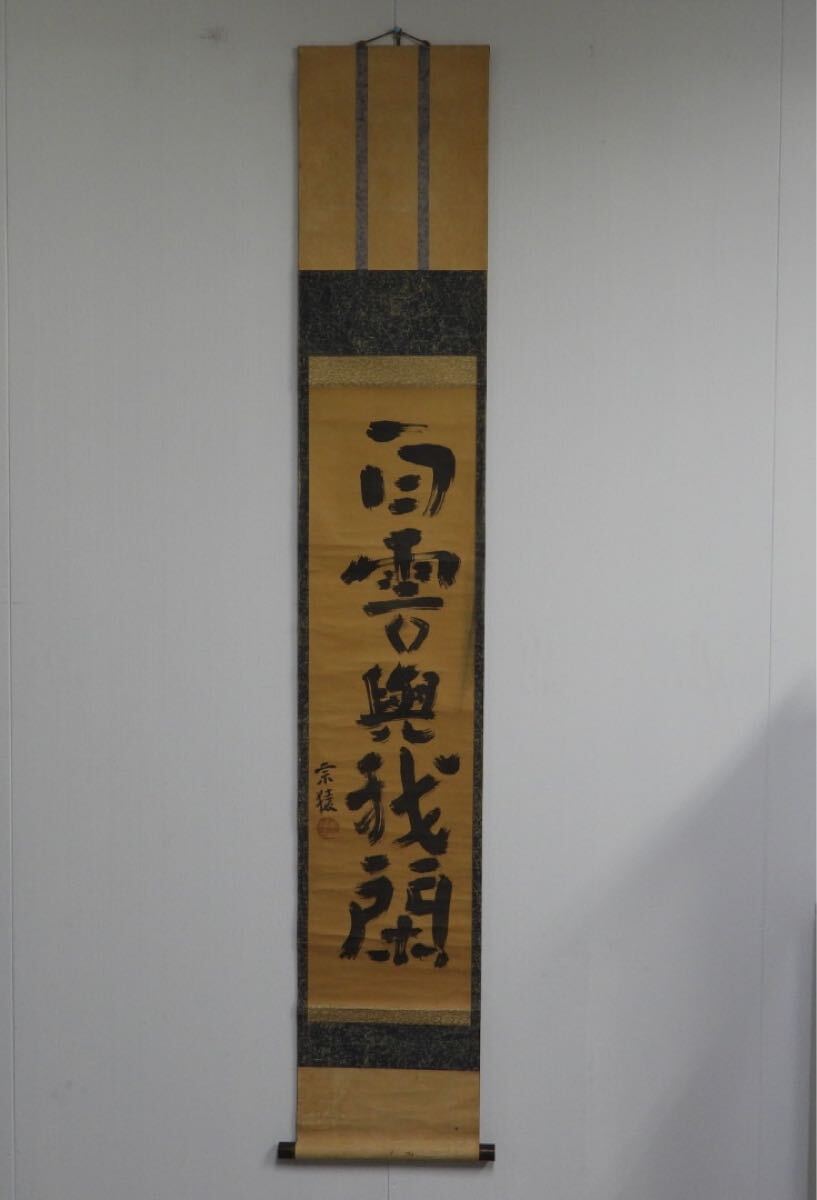 白雲與我閑
宗猿